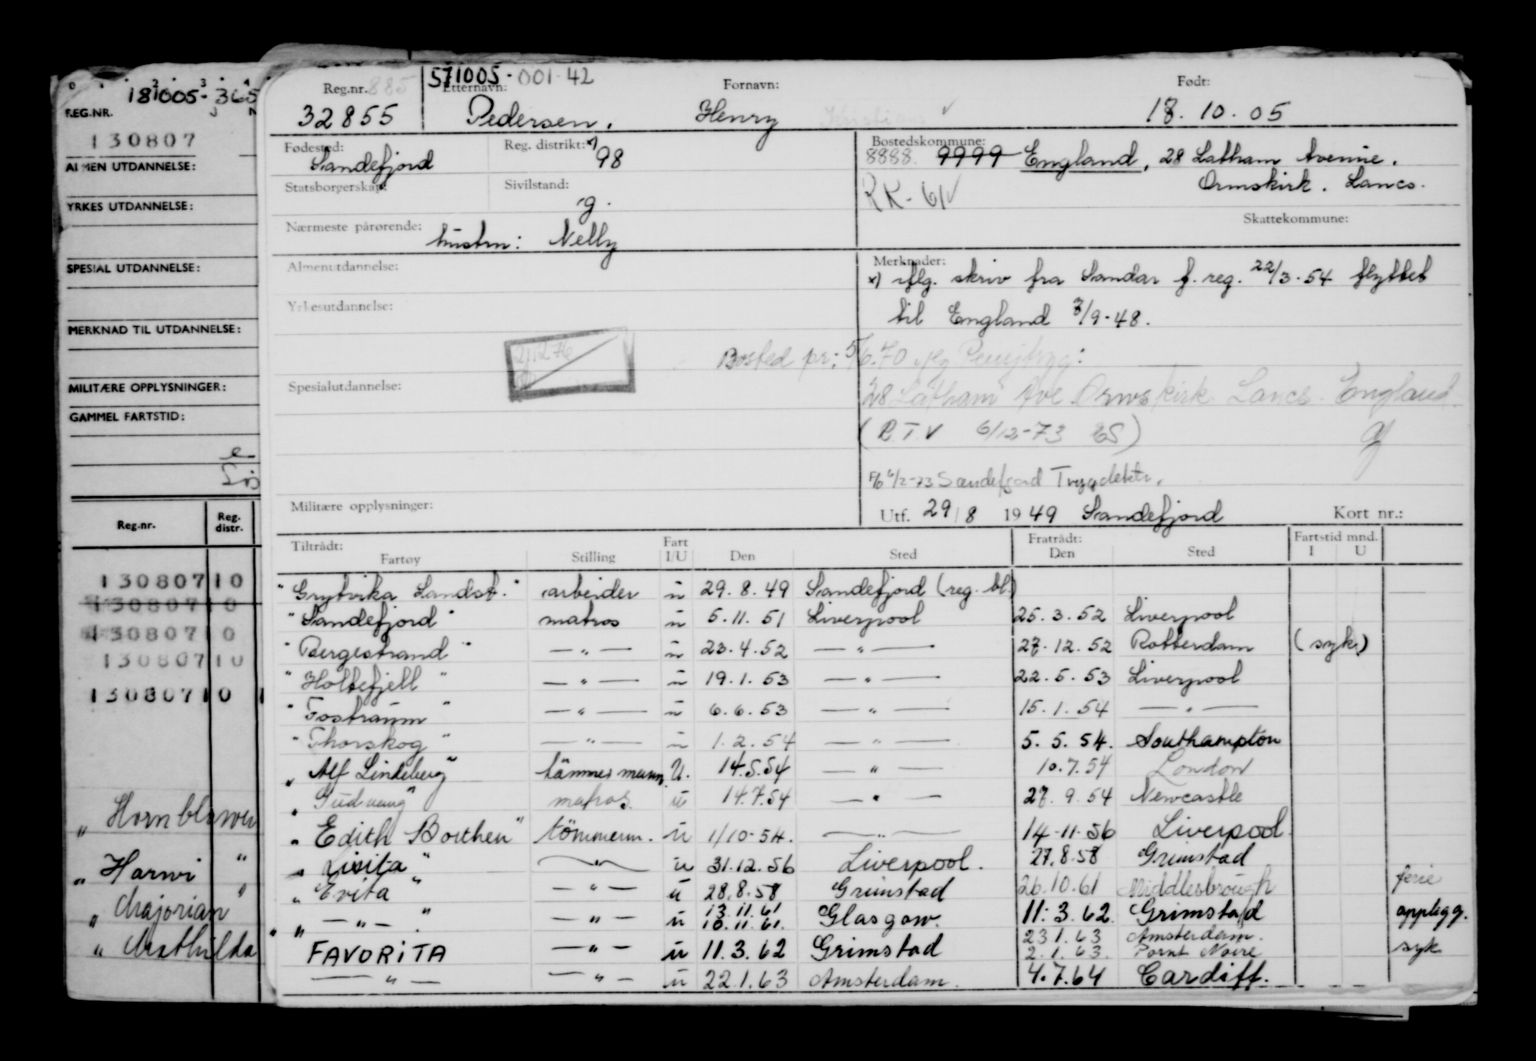 181005-365
REG.NR.
130807
ALMEN UTDANNELSE:
YRKES UTDANNELSE:
SPESIAL UTDANNELSE:
MERKNAD TIL UTDANNELSE:
MILITÆRE OPPLYSNINGER:
GAMMEL FARTSTID:
Reg.nr. Reg. distr.
130807 10
130807 10
130807 10
130807 10
130807 10
" Hornblower
" Harwi "
" Majorian "
" Mathilda
Reg.nr. 885 571005-001-42
Etternavn: Fornavn: Født:
32855 Pedersen, Henry Kristian 18.10.05
Fødested: Reg. distrikt: x) Bostedskommune:
Sandefjord 98 8888. 9999 England, 28 Latham Avenue.
Ormskirk. Lancs.
Statsborgerskap: Sivilstand: RK-61
g.
Skattekommune:
Nærmeste pårørende: hustru: Nelly
Almenutdannelse: Merknader:
x) iflg. skriv fra Sandar f.reg. 22/3-54 flyttet
Yrkesutdannelse: til England 3/9-48.
Bosted pr: 5/6.70
Spesialutdannelse: 28 Latham Ave Ormskirk Lancs. England
(RTV 6/12-73 ES)
6/12-73 Sandefjord
Militære opplysninger: Utf. 29/8 1949 Sandefjord Kort nr.:
Tiltrådt: Fratrådt: Fartstid mnd.
Fartøy Stilling Fart I/U Den Sted Den Sted I U
"Grytvika Landst." arbeider u 29.8.49 Sandefjord (reg.bl.)
"Sandefjord" matros u 5.11.51 Liverpool 25.3.52 Liverpool
"Bergestrand" —"— u 23.4.52 —"— 27.12.52 Rotterdam (syk)
"Holtefjell" —"— u 19.1.53 —"— 22.5.53 Liverpool
"Fostraum" —"— u 6.6.53 —"— 15.1.54 —"—
"Thorskog" —"— u 1.2.54 —"— 5.5.54. Southampton
"Alf Lindeberg" tömmermann. U. 14.5.54 —"— 10.7.54 London
"Gudvang" matros. u 14.7.54 —"— 27.9.54 Newcastle
"Edith Borthen" tömmerm. u 1/10-54. —"— 14-11-56 Liverpool.
"Lisita" —"— u 31.12.56 Liverpool. 27.8.58 Grimstad
"Evita" —"— u 28.8.58 Grimstad 26.10.61 Middlesbrough ferie
" —"— " —"— u 13.11.61 10.11.61. Glasgow. 11.3.62. Grimstad opplegg.
" " FAVORITA —"— u 11.3.62 Grimstad 23.1.63 Amsterdam. 2.1.63. Pornt Noire syk
—"— —"— u 22.1.63 Amsterdam. 4.7.64 Cardiff.